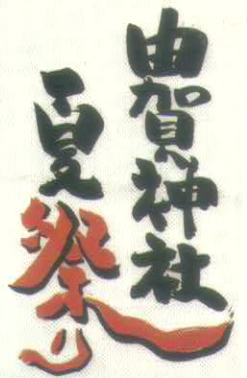 由賀神社
夏祭り